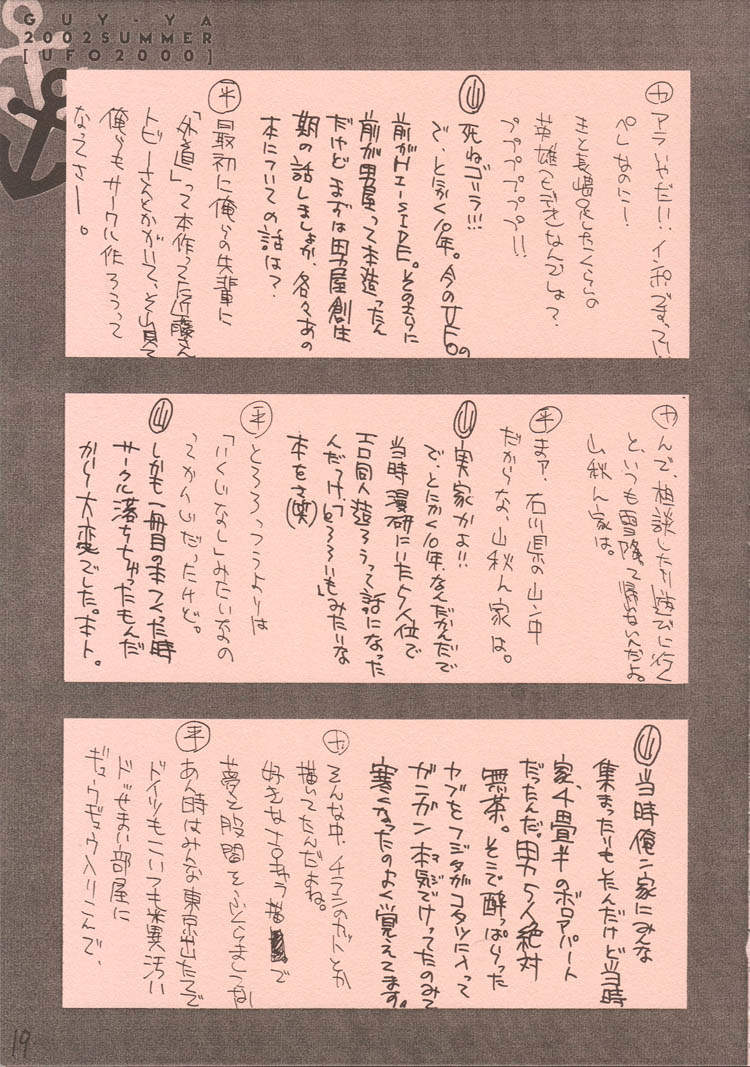 GUY-YA
2002SUMMER
[UFO2000]
カ アライヤだ!!、インポですってい
英雄
ププププププ!!
山 死ねゴーラ!!!
で、とにかく10年。今のUFOの
前がHI-SIDE。そのまた
前が男屋って本造ったん
だけどまずは男屋創生
期の話しましょか、各々あの
本についての話は?
平 最初に俺らの先輩に
「外道」って本作ってた近藤さん
トビーさんとかがいて、それ見て
俺らもサークル作ろうって
なってさー。
カ んで、相談したり遊びに行く
と、いつも雪降って帰れないんだよ。
山秋ん家は。
平 まァ、石川県の山ン中
だからな、山秋ん家は。
山 実家かよ!!
で、とにかく10年、なんだかんだで
当時漫研にいた5人位で
エロ同人造ろうって話になった
んだっけ、「とろろいも」みたいな
本をさ(笑)
平 とろろっつうよりは
「いくじなし」みたいなの
ってかんじだったけど。
山 しかも一冊目の本つくった時
サークル落ちちゃったもんだ
から大変でした。ホント。
山 当時俺ン家にみんな
集まったりもしたんだけど当時
家、4畳半のボロアパート
だったんだ。男5人絶対
無茶。そこで酔っぱらった
ヤブをフジタがコタツに入って
ガンガン本気でけってたのみて
マジ
寒くなったのよく覚えてます。
カ そんな中、チラシのカットとか
描いてたんだよね。
好きなプロキャラ描 で
夢と股間をふくらましてな
平 あん時はみんな東京出たてで
ドイツもこいつも米異汚い
ドせまい部屋に
ギュウギュウ入りこんで、
19